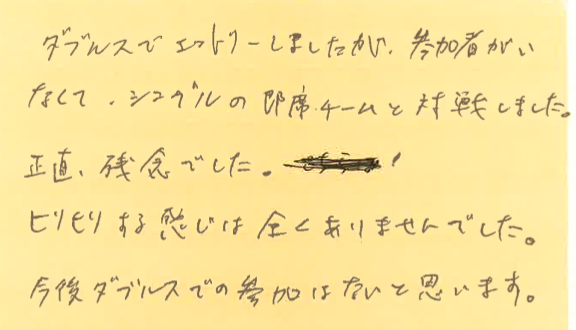 ダブルスでエントリーしましたが、参加者がい
なくて、シングルの即席チームと対戦しました。
正直、残念でした。
ヒリヒリする感じは全くありませんでした。
今後ダブルスでの参加はないと思います。